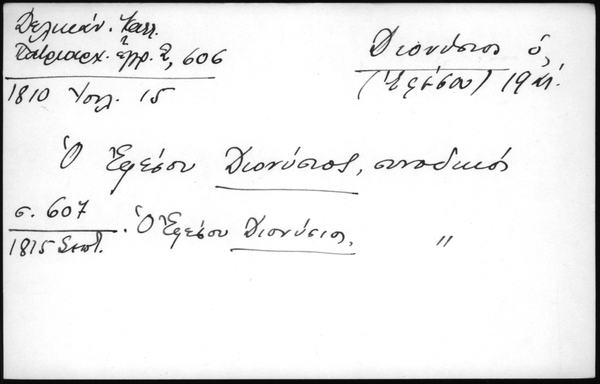 Δελικάν. Καλλ.
Πατριαρχ. ἔγγρ. 2, 606
1810 Ἰουλ. 15
Διονύσιος ὁ,
(Ἐφέσου) 19
Ὁ Ἐφέσου Διονύσιος, συνοδικός
σ. 607
1815 Σεπτ.
Ὁ Ἐφέσου Διονύσιος, "